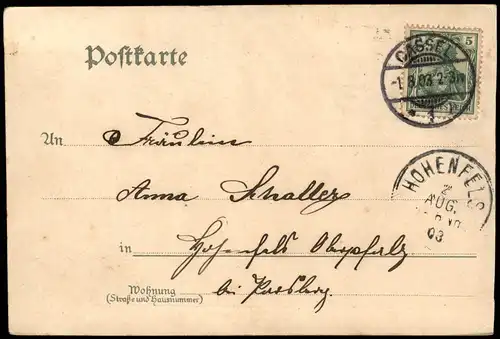 Postkarte
5
CASSEL
-1.8.03.2-3N
* 1
An Fräulein
Anna Schaller
HOHENFELS
2
AUG.
03
in Hohenfels Oberpfalz
Wohnung
(Straße und Hausnummer)
bei Parsberg.